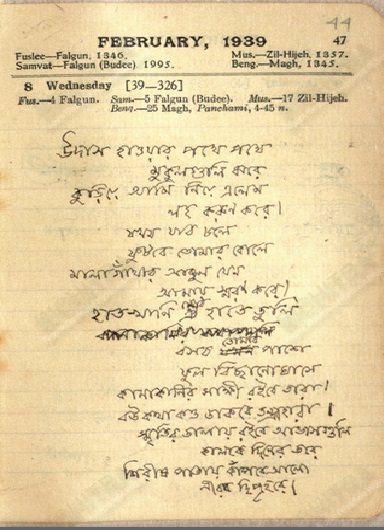 44
FEBRUARY, 1939 47
Fuslee—Falgun, 1346. Mus.—Zil-Hijeh, 1357.
Samvat—Falgun (Budee). 1995. Beng.—Magh, 1345.
8 Wednesday [39—326]
Fus.—4 Falgun. Sam—5 Falgun (Budee). Mus.—17 Zil-Hijeh.
Beng.—25 Magh, Panchami, 4-45 n.
উদাস হাওয়ার পথে পথে
মুকুলগুলি ঝরে
কুড়িয়ে আমি নিয়ে এলেম
লহ করুণ করে।
যখন যাব চলে
ফুটবে তোমার কোলে
মালাগাঁথার আঙুল যেন
আমায় স্মরণ করে।
হাতখানি হাতে তুলি
বসব তোমার পাশে
ফুল বিছানো ঘাসে
কানাকানির সাক্ষী রইবে তারা।
বউ কথা কও ডাকবে তন্দ্রাহারা।
স্মৃতির ডালায় রইবে আভাসগুলি
কালকে দিনের তরে
শিরীষ পাতায় কাঁপবে আলো
নীরব দ্বিপ্রহরে।